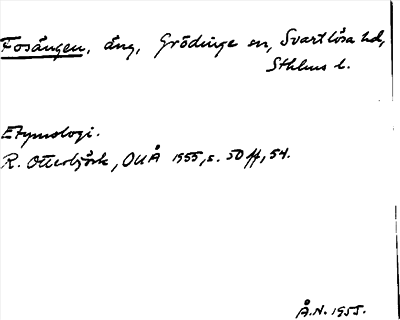 Fosången, äng, Grödinge sn, Svartlösa hd,
Sthlms l.
Etymologi.
R. Otterbjörk, OUÅ 1955, s. 50 ff, 54.
Å.N. 1955.